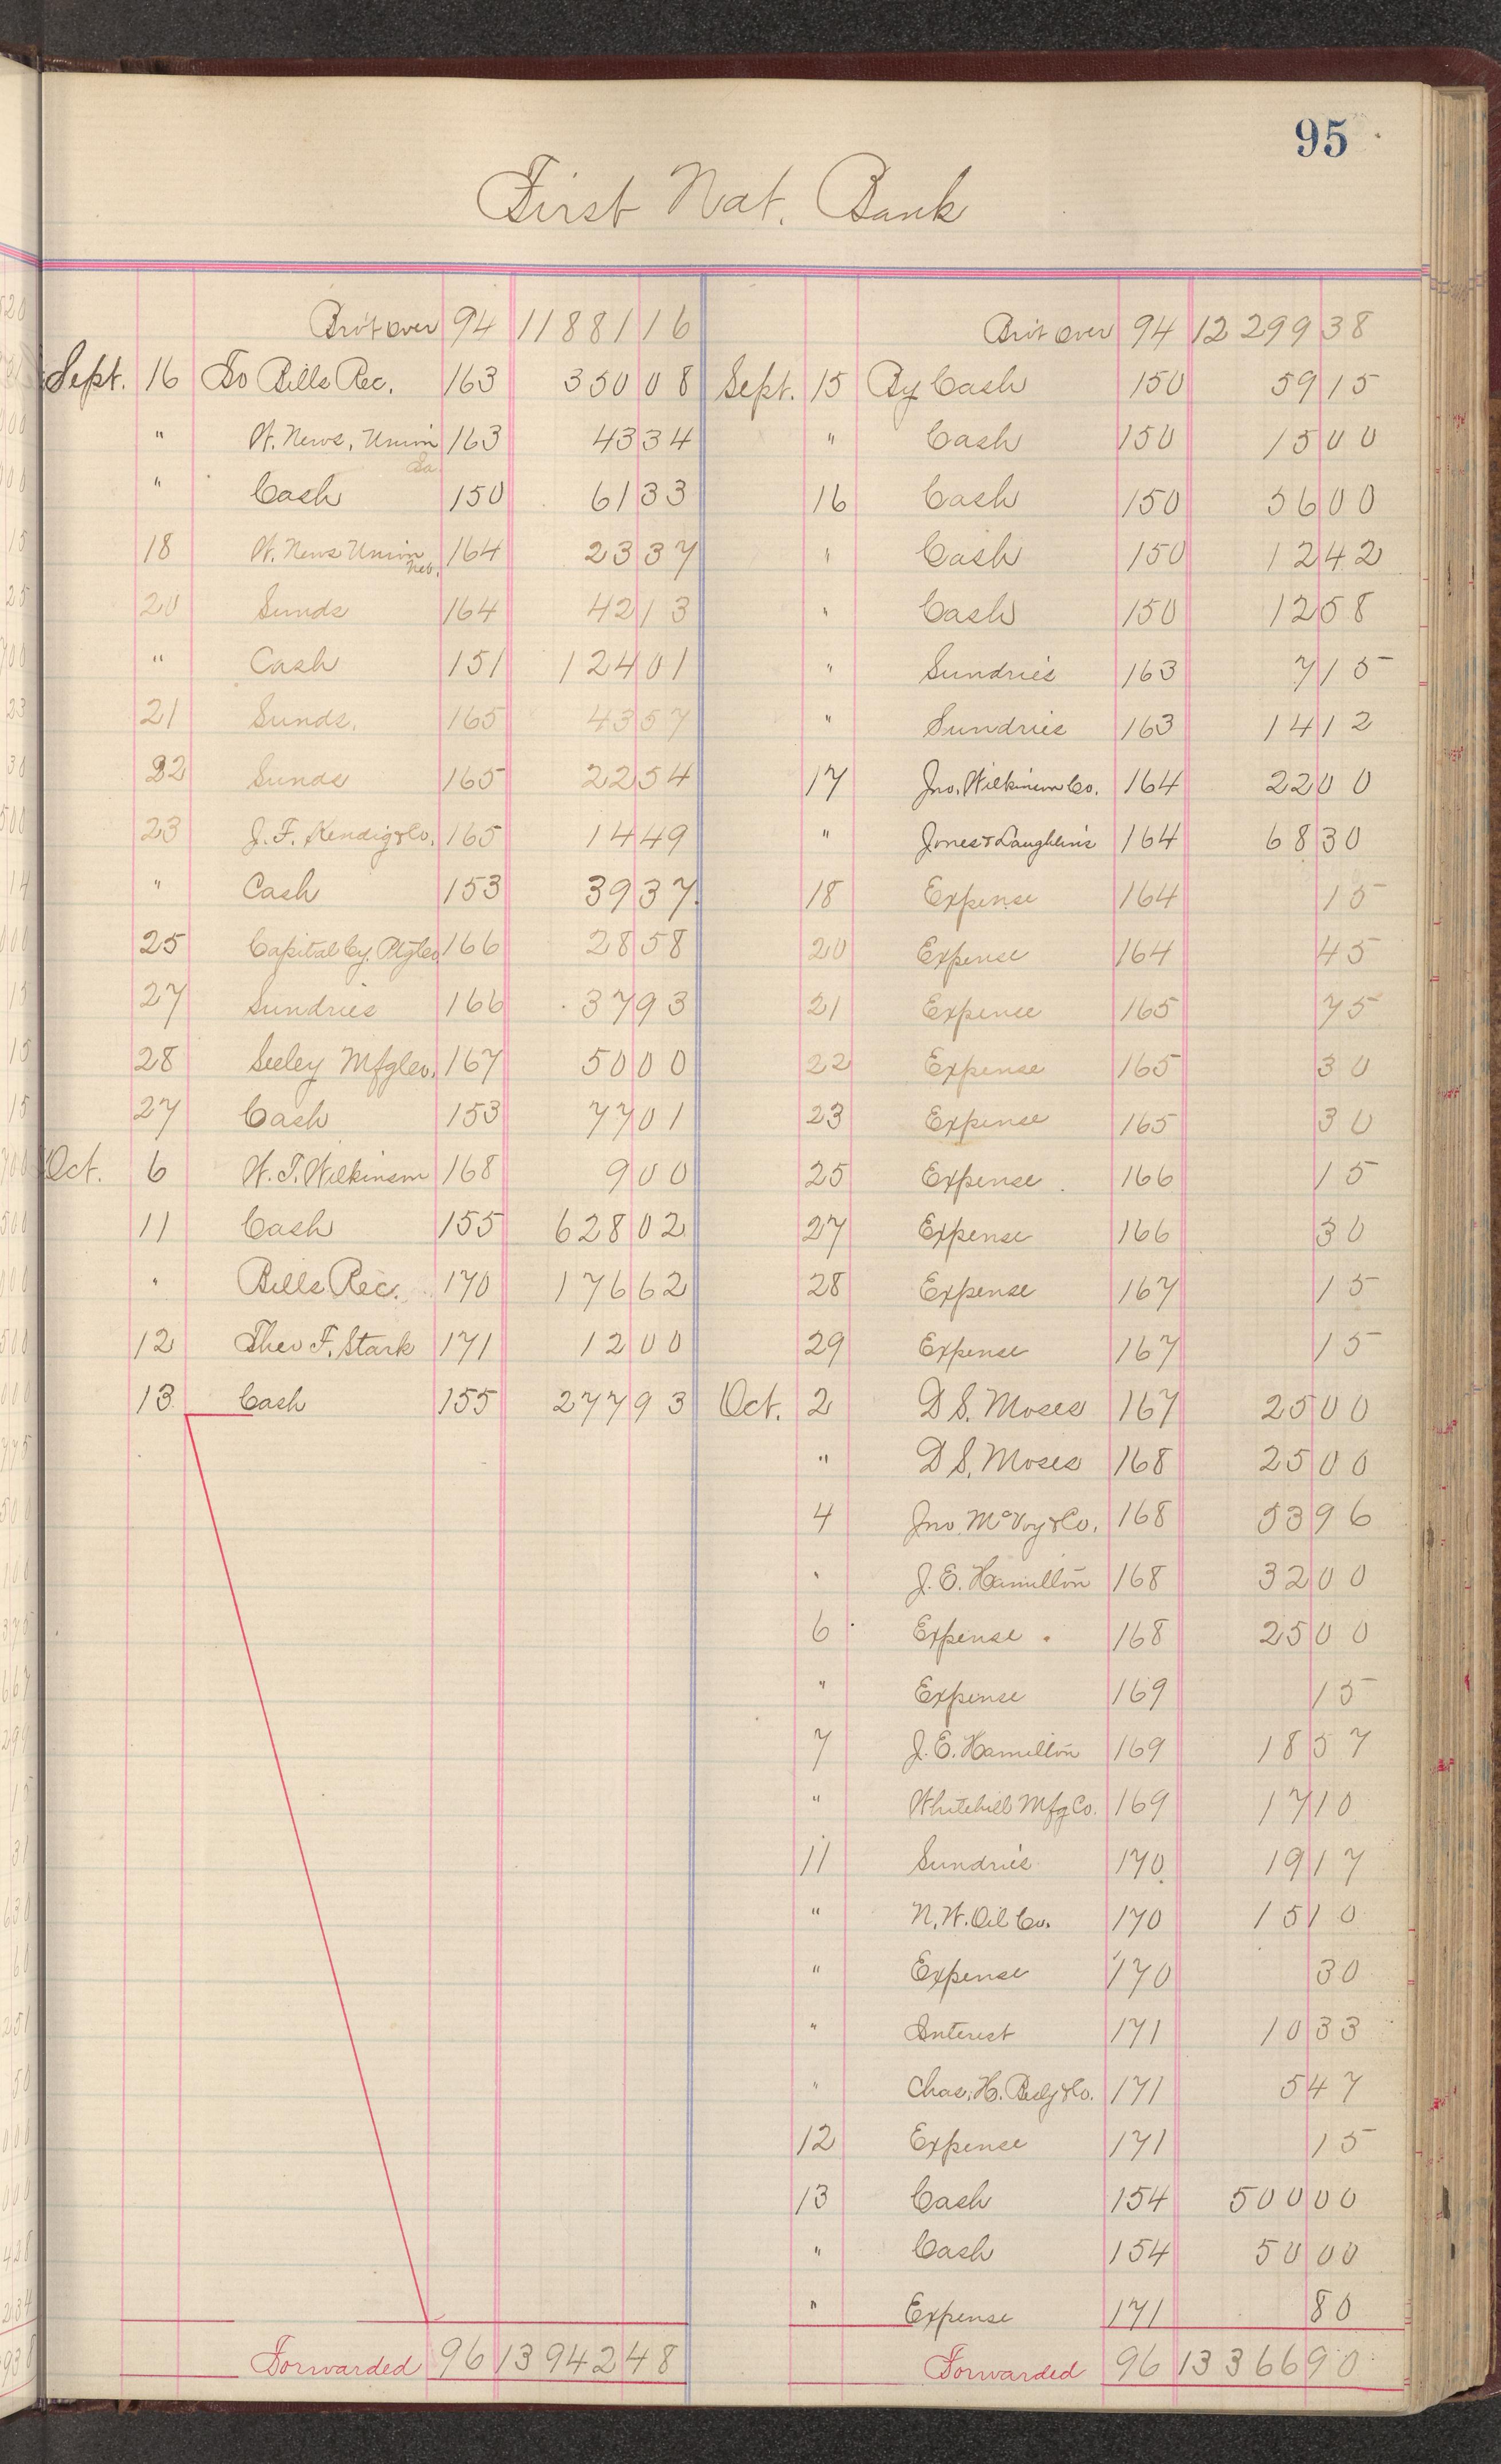 95
First Nat. Bank
Bro't over 94 11881 16
Sept. 16 To Bills Rec. 163 350 08
" W. News, Union Ia. 163 43 34
" Cash 150 61 33
18 W. News Union Neb. 164 23 37
20 Sunds 164 42 13
" Cash 151 124 01
21 Sunds. 165 43 57
22 Sunds 165 22 54
23 J. F. Kendig & Co. 165 14 49
" Cash 153 39 37
25 Capital Cy. Ptg Co. 166 28 58
27 Sundries 166 37 93
28 Seeley Mfg Co. 167 50 00
27 Cash 153 77 01
Oct. 6 W. T. Wilkinson 168 9 00
11 Cash 155 628 02
" Bills Rec. 170 176 62
12 Theo F. Stark 171 12 00
13 Cash 155 277 93
Forwarded 96 13942 48
Bro't over 94 12299 38
Sept. 15 By Cash 150 59 15
" Cash 150 15 00
16 Cash 150 56 00
" Cash 150 12 42
" Cash 150 12 58
" Sundries 163 7 15
" Sundries 163 14 12
17 Jno. Wilkinson Co. 164 22 00
" Jones & Laughlins 164 68 30
18 Expense 164 15
20 Expense 164 45
21 Expense 165 75
22 Expense 165 30
23 Expense 165 30
25 Expense 166 15
27 Expense 166 30
28 Expense 167 15
29 Expense 167 15
Oct. 2 D. S. Moses 167 25 00
" D. S. Moses 168 25 00
4 Jno. McVoy & Co. 168 53 96
" J. E. Hamilton 168 32 00
6 Expense 168 25 00
" Expense 169 15
7 J. E. Hamilton 169 18 57
" Whitehill Mfg Co. 169 17 10
11 Sundries 170 19 17
" N. W. Oil Co. 170 15 10
" Expense 170 30
" Interest 171 10 33
" Chas. H. Besly & Co. 171 5 47
12 Expense 171 15
13 Cash 154 500 00
" Cash 154 50 00
" Expense 171 80
Forwarded 96 13366 90